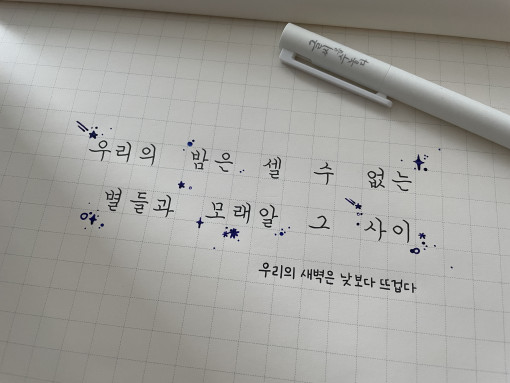 우리의 밤은 셀 수 없는
별들과 모래알 그 사이
우리의 새벽은 낮보다 뜨겁다